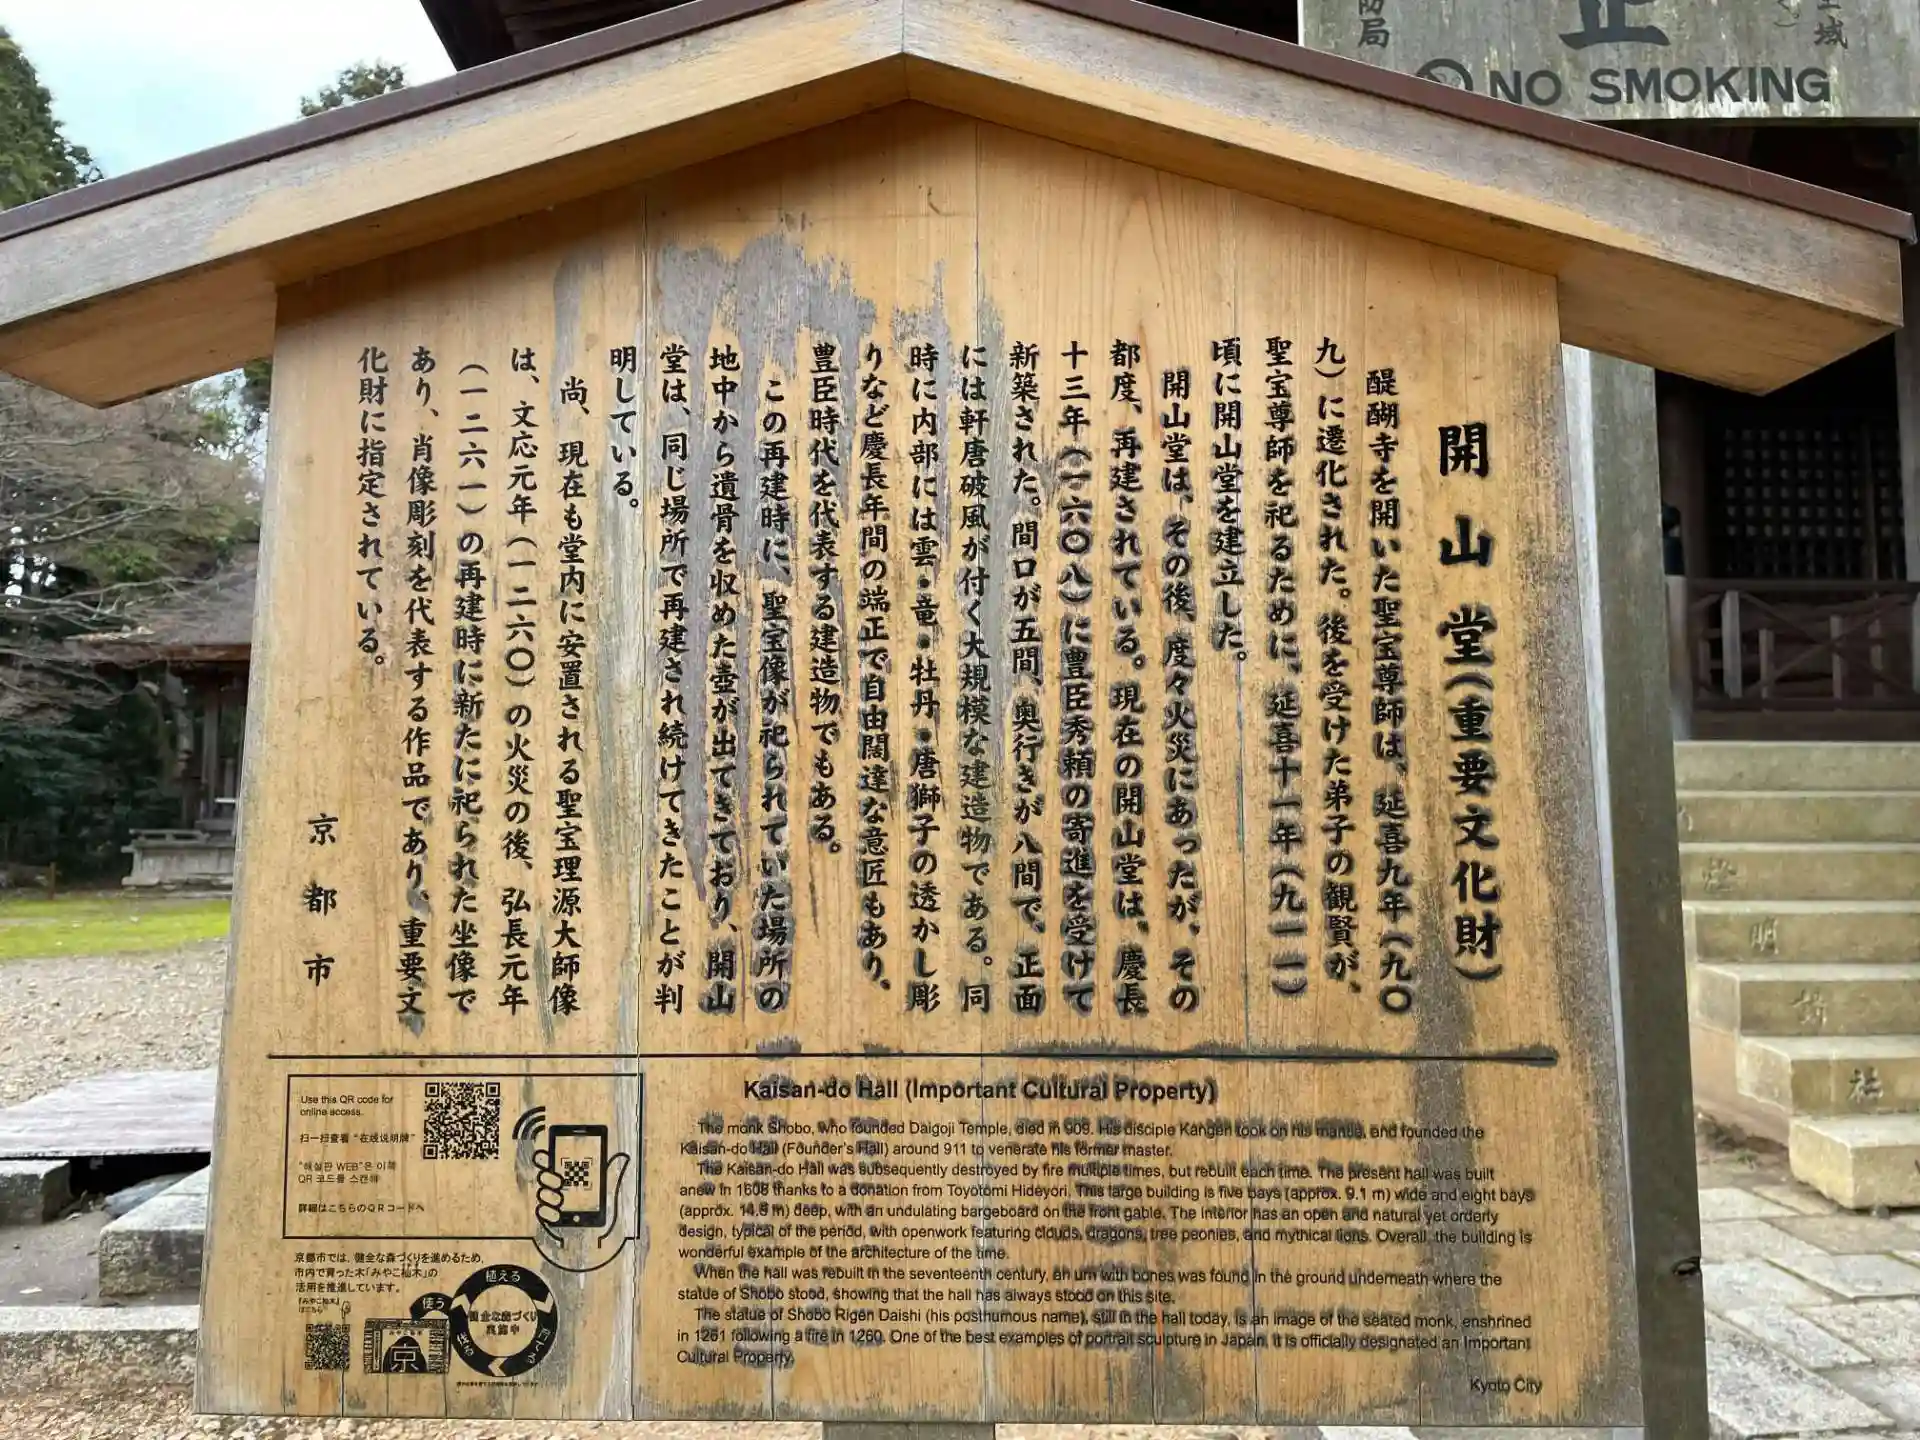 NO SMOKING
開山堂(重要文化財)
醍醐寺を開いた聖宝尊師は、延喜九年(九〇
九)に遷化された。後を受けた弟子の観賢が、
聖宝尊師を祀るために、延喜十一年(九一一)
頃に開山堂を建立した。
開山堂は、その後、度々火災にあったが、その
都度、再建されている。現在の開山堂は、慶長
十三年(一六〇八)に豊臣秀頼の寄進を受けて
新築された。間口が五間、奥行きが八間で、正面
には軒唐破風が付く大規模な建造物である。同
時に内部には雲・竜・牡丹・唐獅子の透かし彫
りなど慶長年間の端正で自由闊達な意匠もあり、
豊臣時代を代表する建造物でもある。
この再建時に、聖宝像が祀られていた場所の
地中から遺骨を収めた壺が出てきており、開山
堂は、同じ場所で再建され続けてきたことが判
明している。
尚、現在も堂内に安置される聖宝理源大師像
は、文応元年(一二六〇)の火災の後、弘長元年
(一二六一)の再建時に新たに祀られた坐像で
あり、肖像彫刻を代表する作品であり、重要文
化財に指定されている。
京都市
Use this QR code for
online access.
扫一扫查看“在线说明牌”
"해설판 WEB"은 이쪽
QR 코드를 스캔해
詳細はこちらのQRコードへ
京都市では、健全な森づくりを進めるため、
市内で育った木「みやこ杣木」の
活用を推進しています。
植える
使う
健全な森づくり
実施中
京
Kaisan-do Hall (Important Cultural Property)
The monk Shobo, who founded Daigoji Temple, died in 909. His disciple Kangen took on his mantle, and founded the
Kaisan-do Hall (Founder's Hall) around 911 to venerate his former master.
The Kaisan-do Hall was subsequently destroyed by fire multiple times, but rebuilt each time. The present hall was built
anew in 1608 thanks to a donation from Toyotomi Hideyori. This large building is five bays (approx. 9.1 m) wide and eight bays
(approx. 14.5 m) deep, with an undulating bargeboard on the front gable. The interior has an open and natural yet orderly
design, typical of the period, with openwork featuring clouds, dragons, tree peonies, and mythical lions. Overall, the building is
wonderful example of the architecture of the time.
When the hall was rebuilt in the seventeenth century, an urn with bones was found in the ground underneath where the
statue of Shobo stood, showing that the hall has always stood on this site.
The statue of Shobo Rigen Daishi (his posthumous name), still in the hall today, is an image of the seated monk, enshrined
in 1261 following a fire in 1260. One of the best examples of portrait sculpture in Japan, it is officially designated an Important
Cultural Property.
Kyoto City